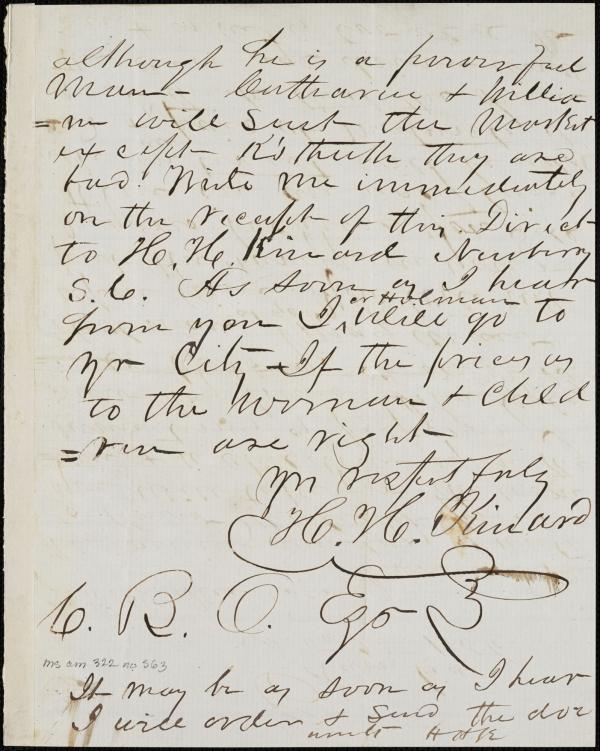 although he is a powerful
Man - Catharine & Willia
= m will suit the Market
except K's teeth they are
bad. Write me immediately
on the receipt of this. Direct
to H. H. Kinard Newberry
S. C. As soon as I hear
from you I, or Holman will go to
yr City - If the prices as
to the woman & Child
= ren are right
yrs respectfuly
H. H. Kinard
C. B. O. Esqr
ms am 322 no 563
It may be as soon as I hear
I will order & send the doc
uments HHK